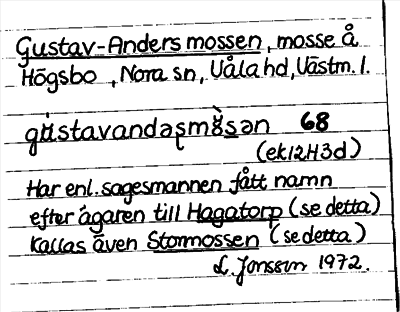 Gustav-Anders mossen, mosse å
Högsbo, Nora sn, Våla hd, Västm. l.
68
(ek12H3d)
Har enl. sagesmannen fått namn
efter ägaren till Hagatorp (se detta)
Kallas även Stormossen (se detta)
L. Jonsson 1972.